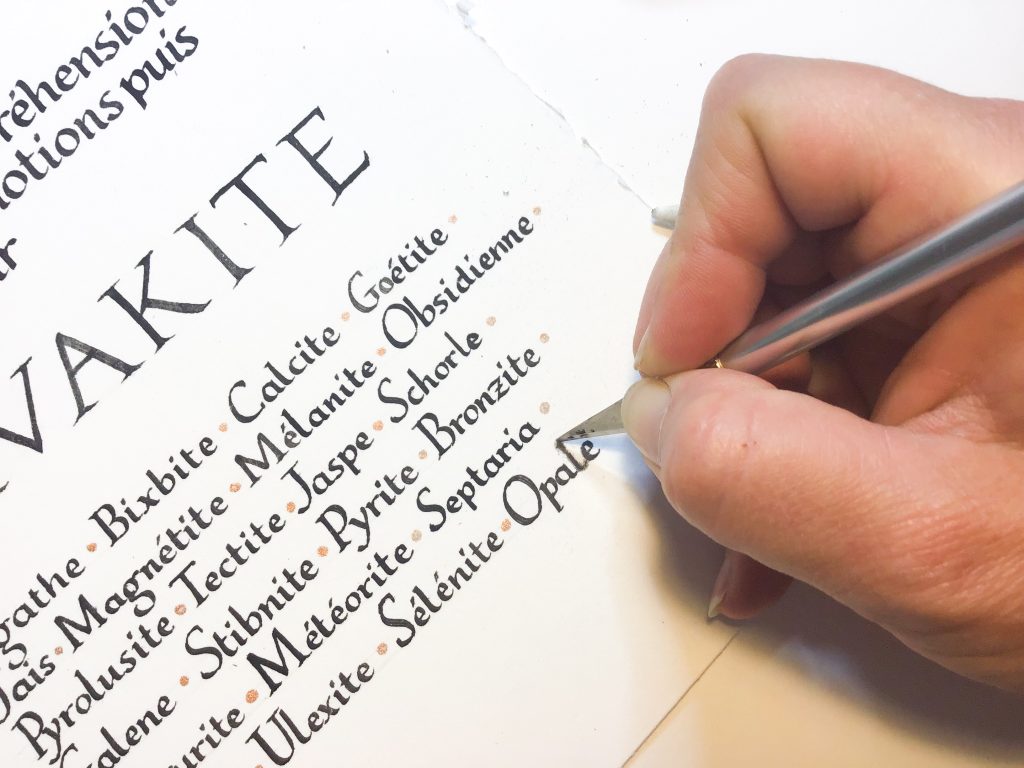 réhension
otions puis
VAKITE
gathe • Bixbite • Calcite • Goétite •
Jais • Magnétite • Mélanite • Obsidienne •
Pyrolusite • Tectite • Jaspe • Schorle •
alene • Stibnite • Pyrite • Bronzite •
urite • Météorite • Septaria •
Ulexite • Sélénite • Opale